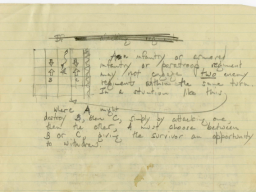 An infantry or armored
infantry or paratroop regiment
may not engage two enemy
regiments within the same turn.
In a situation like this,
where A might
destroy B, then C, simply by attacking one,
then the other, A must choose between
B or C, giving the survivor an opportunity
to withdraw.